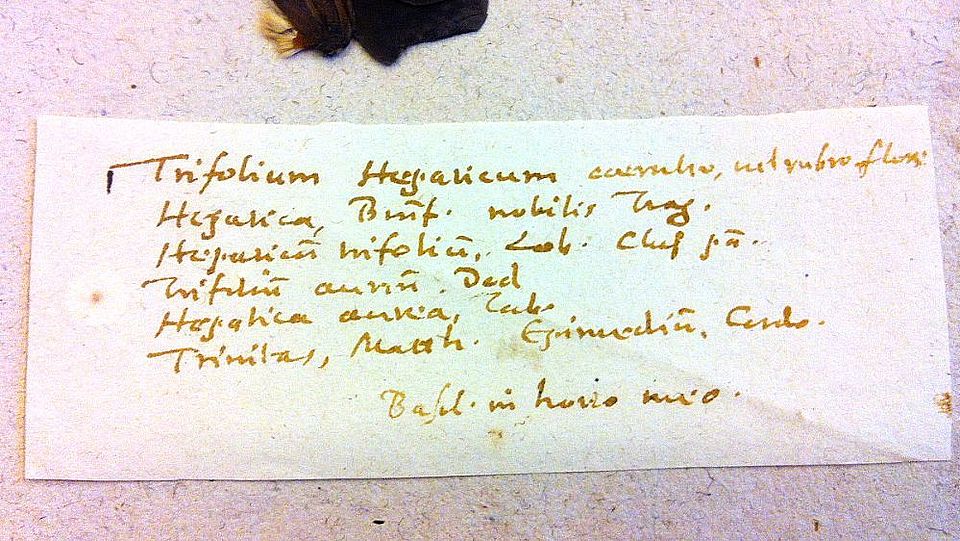 Trifolium Hepaticum caeruleo, vel rubro flore
Hepatica, Brūf. nobilis Trag.
Hepaticū trifoliū, Lob. Clus pā.
Trifoliū aureū. Dod
Hepatica aurea, Tab.
Trinitas, Matth. Epimediū, Cordo.
Basil. in horto meo.